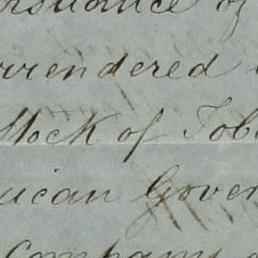 rsuance of
rrendered
Stock of Tob
ican Gover
Company